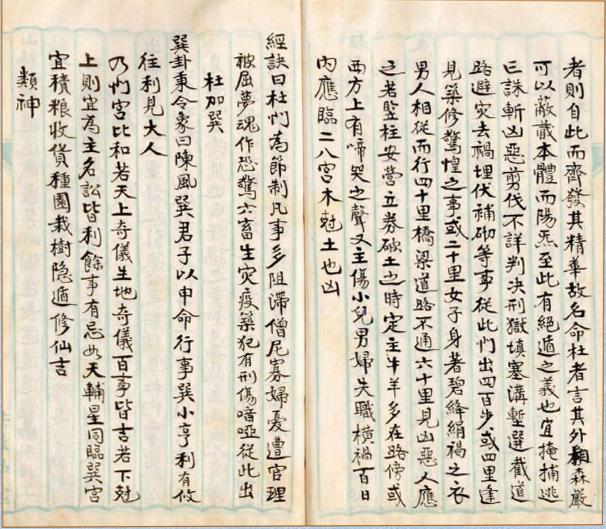 者則自此而齊發其精華故名命杜者言其外貌森嚴
可以蔽藏本體而陽炁至此有絕遁之義也宜掩捕逃
亡誅斬凶惡剪伐不詳判決刑獄填塞溝塹選截道
路避灾去禍埋伏補砌等事從此門出四百步或四里逢
見築修驚惶之事或二十里女子身著碧絳絹禍之衣
男人相從而行四十里橋梁道路不通六十里見凶惡人應
之若豎柱安營立券破土也時定主牛羊多在路傍或
西方上有啼哭之聲又主傷小兒男婦失職橫禍百日
內應臨二八宮木尅土也凶
經訣曰杜門為節制凡事多阻滯僧尼寡婦憂遭官理
被屈夢魂作恐驚六畜生灾疫築犯有刑傷喑啞從此出
杜加巽
巽卦東令象曰陳風巽君子以申命行事巽小亨利有攸
往利見大人
乃門宮比和若天上奇儀生地奇儀百事皆吉若下尅
上則宜為主名訟皆利餘事有忌如天輔星同臨巽宮
宜積粮收貨種園栽樹隐遁修仙吉
類神